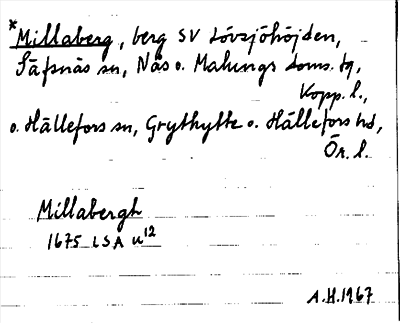 *Millaberg, berg SV Lövsjöhöjden,
Säfsnäs sn, Näs o. Malungs doms. tg,
Kopp. l.,
o. Hällefors sn, Grythytte o. Hällefors hd,
Ör. l.
Millabergh
1675 LSA u12
A.H. 1967